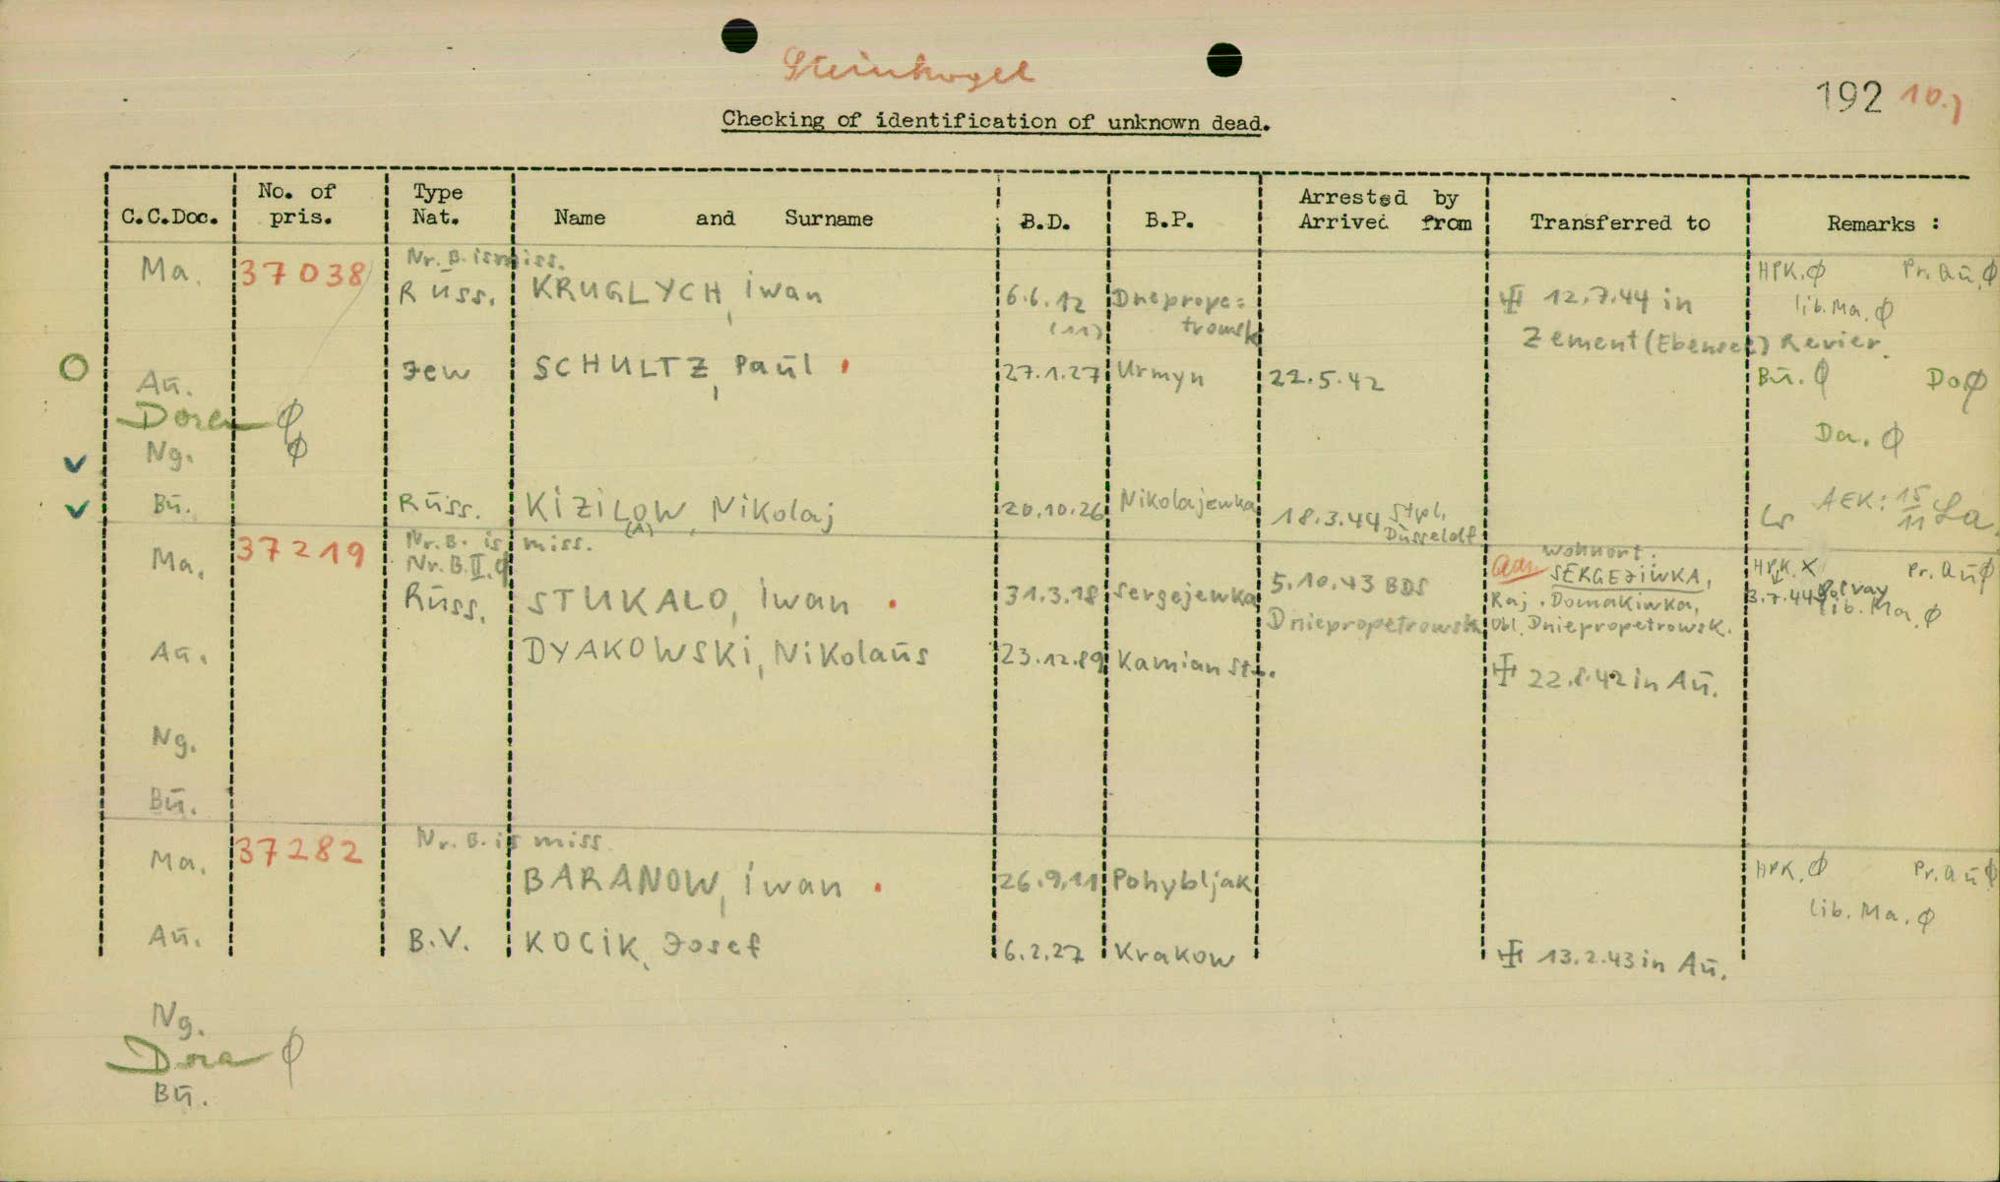 Steinkogel
192 10.)
Checking of identification of unknown dead.
C.C.Doc. No. of pris. Type Nat. Name and Surname B.D. B.P. Arrested by Arrived from Transferred to Remarks :
Nr. B. is miss.
Ma. 37038 Rüss. KRUGLYCH, iwan 6.6.12 (11) Dnieprope= trowsk 卐 12.7.44 in HPK. Ø Pr. Aü. Ø
lib. Ma. Ø
Zement (Ebensee) Revier.
Aü. Jew SCHULTZ, Paül 27.1.27 Urmyn 22.5.42 Bü. Ø Do Ø
Dora Ø
Da. Ø
Ng. Ø
Bü. Rüss. KiZiLOW, Nikolaj 20.10.26 Nikolajewka 18.3.44 Stpl. Düsseldf AEK: 15/11
(A)
Nr. B. is miss.
Ma. 37219 Nr. B. II. Ø wohnort: HPK. X Pr. Aü Ø
Rüss. STUKALO, iwan 31.3.18 Sergejewka 5.10.43 BDS SERGEJiWKA, 3.7.44 Solvay
Dniepropetrowsk Raj. Domakiwka, lib. Ma. Ø
Obl. Dniepropetrowsk.
Aü. DYAKOWSKi, Nikolaüs 23.12.89 Kamian Str. 22.8.42 in Aü.
Ng.
Bü.
Nr. B. is miss
Ma. 37282 BARANOW, iwan 26.9.11 Pohybljak HPK. Ø Pr. Aü Ø
lib. Ma. Ø
Aü. B.V. KOCiK, Josef 6.2.27 Krakow 13.2.43 in Aü.
Ng.
Dora Ø
Bü.